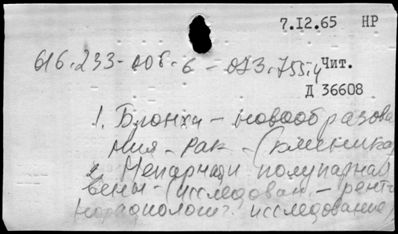 7.12.65 НР
616.233-006.6-073.755.4 Чит.
Д 36608
1. Бронхи - новообразова
ния - рак - (клиника)
2. Непарная полупарная
вены - (исследован. - рентг
норадиологич. исследование)